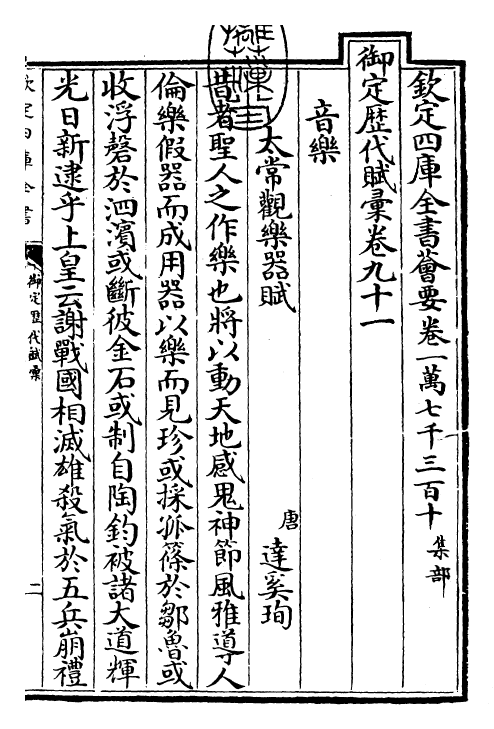 欽定四庫全書薈要卷一萬七千三百十 集部
御定歴代賦彙卷九十一
音樂
太常觀樂器賦 唐 達奚珣
昔者聖人之作樂也將以動天地感鬼神節風雅導人
倫樂假器而成用器以樂而見珍或採孤篠於鄒魯或
收浮磬於泗濱或斷彼金石或制自陶鈞被諸大道輝
光日新逮乎上皇云謝戰國相滅雄殺氣於五兵崩禮
欽定四庫全書
御定歷代賦彙